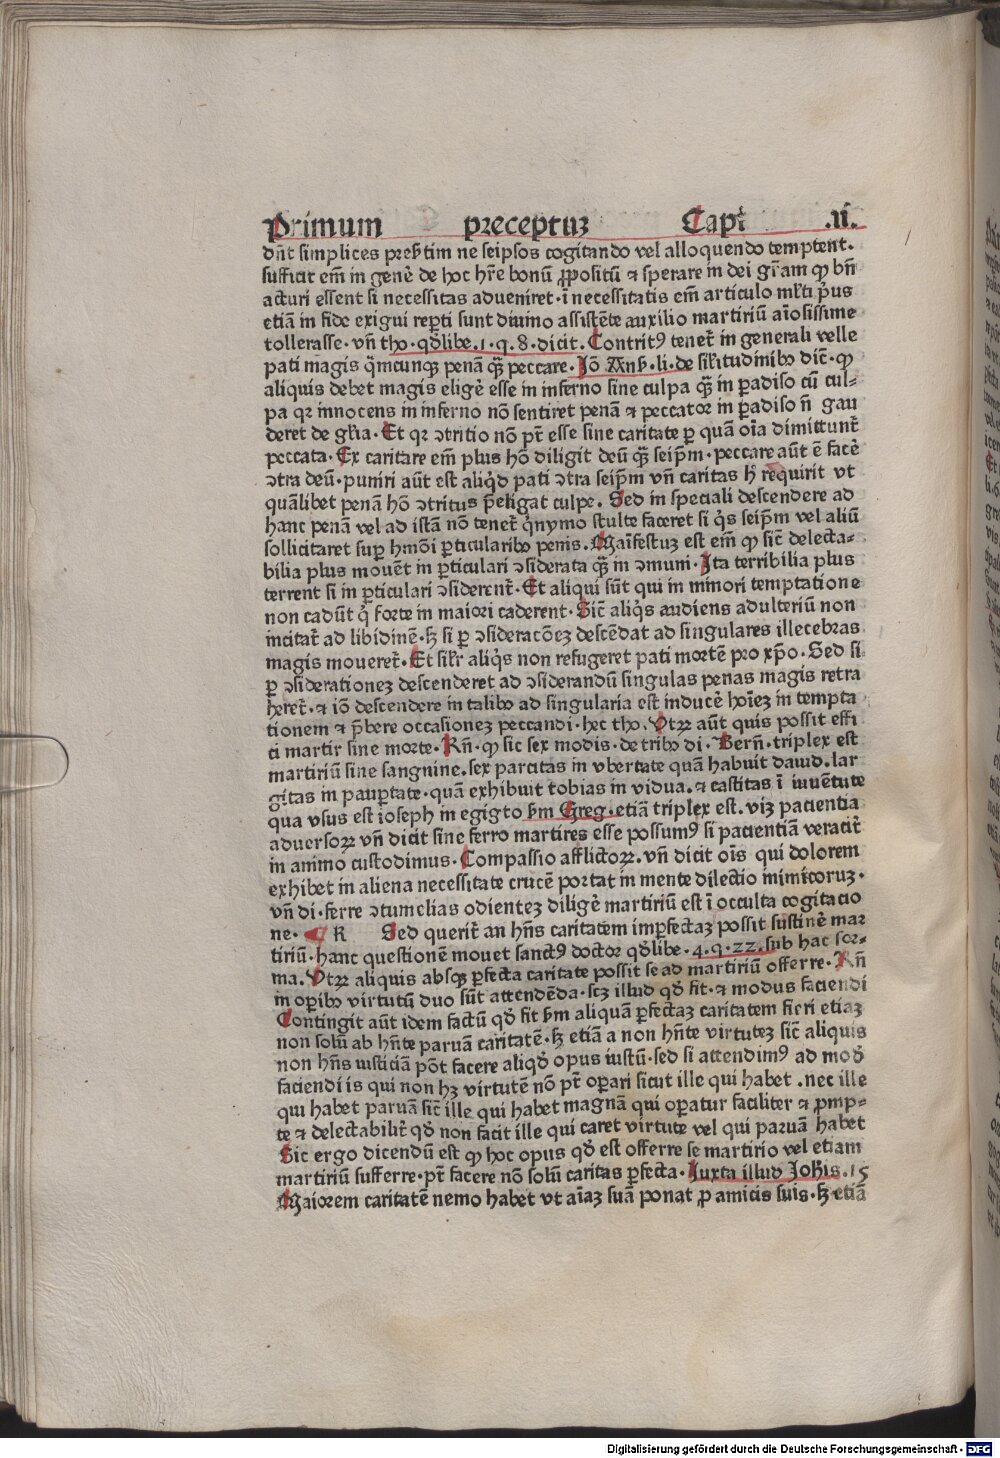 Primum preceptuꝫ Capł .ii.
dn̄t simplices presertim ne seipsos cogitando vel alloquendo temptent.
sufficit em̄ in gen̄e de hoc hr̄e bonū ꝓpositū ⁊ sperare in dei gr̄am ꝙ bn̄
acturi essent si necessitas adueniret·ī necessitatis em̄ articulo ml̄ti pꝰus
etiā in fide exigui repti sunt diuino assistēte auxilio martiriū aīosissime
tollerasse·vn̄ tho·qd̄libe.1.q.8.dicit.Contritꝰ tenet̄ in generali velle
pati magis q̄mcunqꝫ penā qꝫ peccare.Jō Anß.li.de silītudinibꝰ dic̄·ꝙ
aliquis debet magis eligē esse in inferno sine culpa qꝫ in ꝑadiso cū cul⸗
pa qꝛ innocens in inferno nō sentiret penā ⁊ peccator in ꝑadiso n̄ gau
deret de gl̄ia·Et qꝛ ↄtritio nō pt̄ esse sine caritate ꝑ quā oīa dimittunt̄
peccata·Ex caritate em̄ plus hō diligit deū qꝫ seip̄m·peccare aūt ē facē
ↄtra deū·puniri aūt est aliqd̄ pati ↄtra seip̄m vn̄ caritas h̄ requirit vt
quālibet penā hō ↄtritus p̄eligat culpe. Sed in speciali descendere ad
hanc penā vel ad istā nō tenet̄ q̄nymo stulte faceret si qͥs seip̄m vel aliū
sollicitaret suꝑ hmōi ꝑticularibꝰ penis.Maīfestuꝫ est em̄ ꝙ sic̄ delecta⸗
bilia plus mouēt in ꝑticulari ↄsiderata qꝫ in ↄmuni·Ita terribilia plus
terrent si in ꝑticulari ↄsiderent̄·Et aliqui sūt qui in minori temptatione
non cadūt qͥ forte in maiori caderent·Sic̄ aliqͥs audiens adulteriū non
incitat̄ ad libidinē·ſꝫ si ꝑ ↄsideracōeꝫ descēdat ad singulares illecebras
magis moueret̄·Et silīr aliqͥs non refugeret pati mortē pro xp̄o·Sed si
ꝑ ↄsiderationeꝫ descenderet ad ↄsiderandū singulas penas magis retra
heret̄·⁊ iō descendere in talibꝰ ad singularia est inducē hoīeꝫ in tempta
tionem ⁊ p̄bere occasioneꝫ peccandi·hec tho.Vtꝝ aūt quis possit effi
ci martir sine morte·Rn̄·ꝙ sic sex modis·de tribꝰ di·Bern̄·triplex est
martiriū sine sanguine.sex parcitas in vbertate quā habuit dauid.lar
gitas in pauꝑtate·quā exhibuit tobias in vidua.⁊ castitas ī iuuētute
qua vsus est ioseph in egipto ẜm Greg·etiā triplex est.viꝫ pacientia
aduersoꝝ vn̄ dicit sine ferro martires esse possumꝰ si pacientiā veracit̄
in animo custodimus·Compassio afflictoꝝ.vn̄ dicit oīs qui dolorem
exhibet in aliena necessitate crucē portat in mente dilectio inimicoruꝫ·
vn̄ di·ferre ↄtumelias odienteꝫ diligē martiriū est ī occulta cogitacio
ne· R Sed querit̄ an hn̄s caritatem imꝑfectaꝫ possit sustinē mar
tiriū·hanc questionē mouet sanctꝰ doctor qd̄libe·4.q.22.sub hac for⸗
ma.Vtꝝ aliquis absqꝫ ꝑfecta caritate possit se ad martiriū offerre·Rn̄
in oꝑibꝰ virtutū duo sūt attendēda·scꝫ illud qd̄ fit·⁊ modus faciendi
Contingit aūt idem factū qd̄ fit ẜm aliquā ꝑfectaꝫ caritatem fieri etiaꝫ
non solū ab hn̄te paruā caritatē·ſꝫ etiā a non hn̄te virtuteꝫ sic̄ aliquis
non hn̄s iusticiā pōt facere aliqd̄ opus iustū·sed si attendimꝰ ad mod̄
faciendi is qui non hꝫ virtutē nō pt̄ oꝑari sicut ille qui habet .nec ille
qui habet paruā sic̄ ille qui habet magnā qui oꝑatur faciliter ⁊ ꝓmp⸗
te ⁊ delectabilit̄ qd̄ non facit ille qui caret virtute vel qui paruā habet
Sic ergo dicendū est ꝙ hoc opus qd̄ est offerre se martirio vel etiam
martiriū sufferre·pt̄ facere nō solū caritas ꝑfecta·Iuxta illud Joh̄is.15
Maiorem caritatē nemo habet vt aīaꝫ suā ponat ꝓ amicis suis·ſꝫ etiā
Digitalisierung gefördert durch die Deutsche Forschungsgemeinschaft · DFG